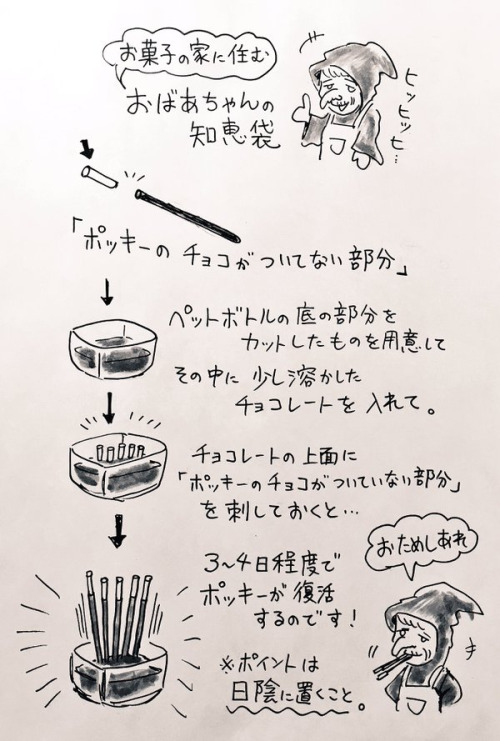 お菓子の家に住む
おばあちゃんの
知恵袋
ヒッヒッヒ…
「ポッキーの チョコが ついてない部分」
ペットボトルの底の部分を
カットしたものを用意して
その中に 少し溶かした
チョコレートを 入れて。
チョコレートの 上面に
「ポッキーのチョコがついていない部分」
を刺しておくと…
おためしあれ
3〜4日程度で
ポッキーが復活
するのです!
※ポイントは
日陰に置くこと。